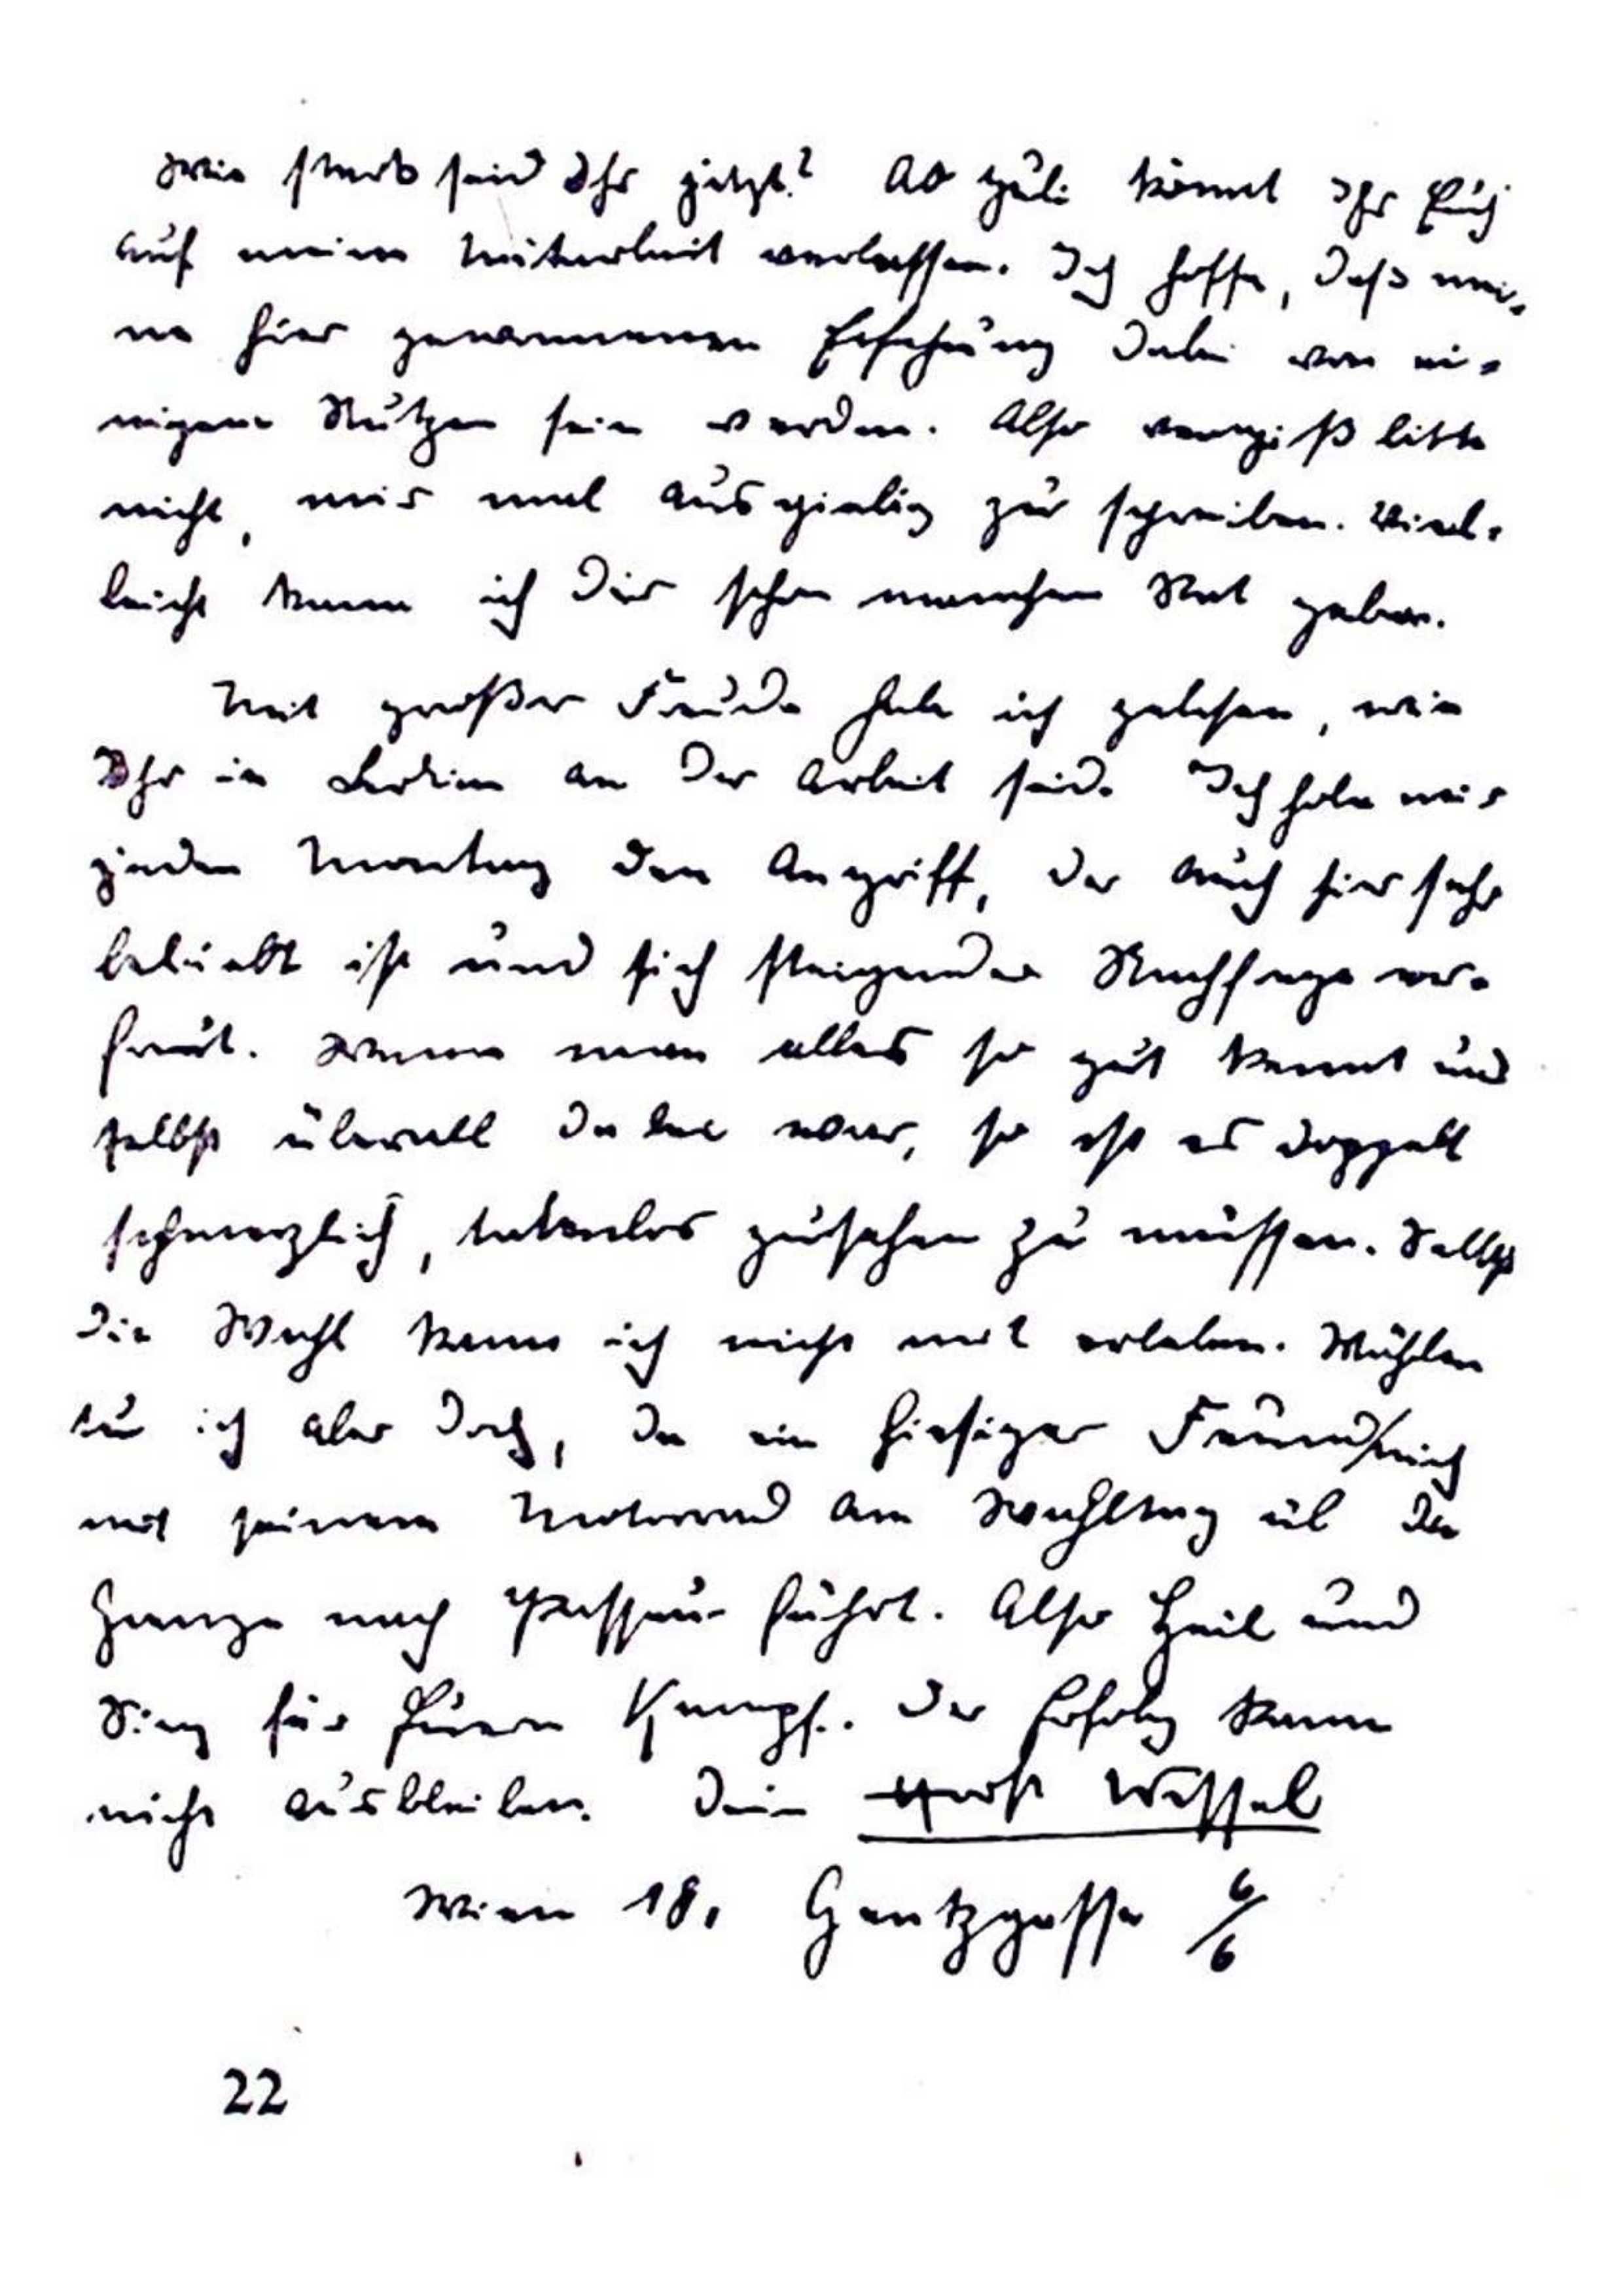 Wie stark seid Ihr jetzt? Ab Juli könnt Ihr Euch
auf meine Mitarbeit verlassen. Ich hoffe, daß mei-
ne hier gewonnenen Erfahrung dabei von ei-
nigem Nutzen sein werden. Also vergiß bitte
nicht, mir mal ausgiebig zu schreiben. Viel-
leicht kann ich Dir schon manchen Rat geben.
Mit großer Freude habe ich gelesen, wie
Ihr in Berlin an der Arbeit seid. Ich hole mir
jeden Montag den Angriff, der auch hier sehr
beliebt ist und sich steigender Nachfrage er-
freut. Wenn man alles so gut kennt und
selbst überall dabei war, so ist es doppelt
schmerzlich, tatenlos zusehen zu müssen. Selbst
die Wahl kann ich nicht mit erleben. Wählen
tu ich aber doch, da ein hiesiger Freund mich
mit seinem Motorrad am Wahltag üb der
Grenze nach Passau fährt. Also Heil und
Sieg für Euren Kampf. Der Erfolg kann
nicht ausbleiben. Dein Horst Wessel
Wien 18, Gentzgasse 6/6
22